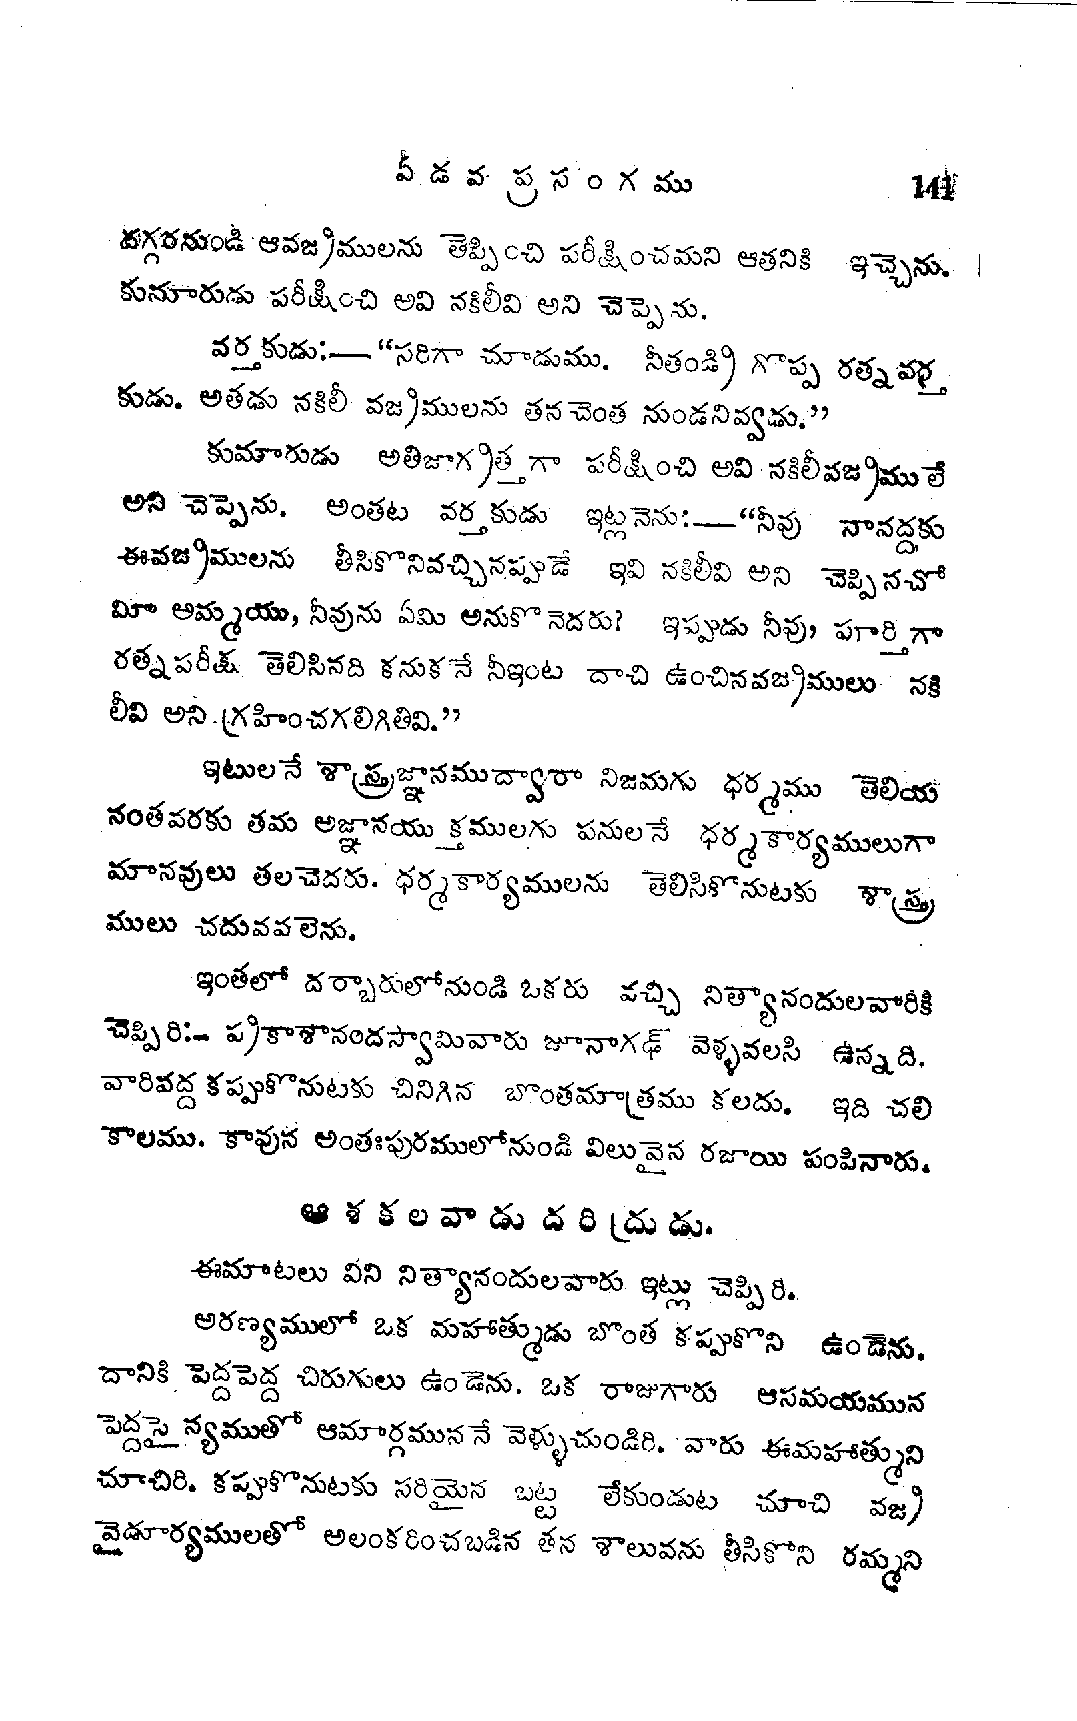 ఏడవ ప్రసంగము 141
దగ్గరనుండి ఆవజ్రములను తెప్పించి పరీక్షించమని ఆతనికి ఇచ్చెను.
కుమారుడు పరీక్షించి అవి నకిలీవి అని చెప్పెను.
వర్తకుడు:—“సరిగా చూడుము. నీతండ్రి గొప్ప రత్నవర్త
కుడు. అతడు నకిలీ వజ్రములను తనచెంత నుండనివ్వడు.”
కుమారుడు అతిజాగ్రత్తగా పరీక్షించి అవి నకిలీవజ్రములే
అని చెప్పెను. అంతట వర్తకుడు ఇట్లనెను:—“నీవు నావద్దకు
ఈవజ్రములను తీసికొనివచ్చినప్పుడే ఇవి నకిలీవి అని చెప్పినచో
మీ అమ్మయు, నీవును ఏమి అనుకొనెదరు? ఇప్పుడు నీవు, పూర్తిగా
రత్నపరీక్ష తెలిసినది కనుకనే నీఇంట దాచి ఉంచినవజ్రములు నకి
లీవి అని గ్రహించగలిగితివి.”
ఇటులనే శాస్త్రజ్ఞానముద్వారా నిజమగు ధర్మము తెలియ
నంతవరకు తమ అజ్ఞానయుక్తములగు పనులనే ధర్మకార్యములుగా
మానవులు తలచెదరు. ధర్మకార్యములను తెలిసికొనుటకు శాస్త్ర
ములు చదువవలెను.
ఇంతలో దర్బారులోనుండి ఒకరు వచ్చి నిత్యానందులవారికి
చెప్పిరి:- ప్రకాశానందస్వామివారు జూనాగఢ్ వెళ్ళవలసి ఉన్నది.
వారివద్ద కప్పుకొనుటకు చినిగిన బొంతమాత్రము కలదు. ఇది చలి
కాలము. కావున అంతఃపురములోనుండి విలువైన రజాయి పంపినారు.
ఆశకలవాడు దరిద్రుడు.
ఈమాటలు విని నిత్యానందులవారు ఇట్లు చెప్పిరి.
అరణ్యములో ఒక మహాత్ముడు బొంత కప్పుకొని ఉండెను.
దానికి పెద్దపెద్ద చిరుగులు ఉండెను. ఒక రాజుగారు ఆసమయమున
పెద్దసైన్యముతో ఆమార్గముననే వెళ్ళుచుండిరి. వారు ఈమహాత్ముని
చూచిరి. కప్పుకొనుటకు సరియైన బట్ట లేకుండుట చూచి వజ్ర
వైడూర్యములతో అలంకరించబడిన తన శాలువను తీసికొని రమ్మని